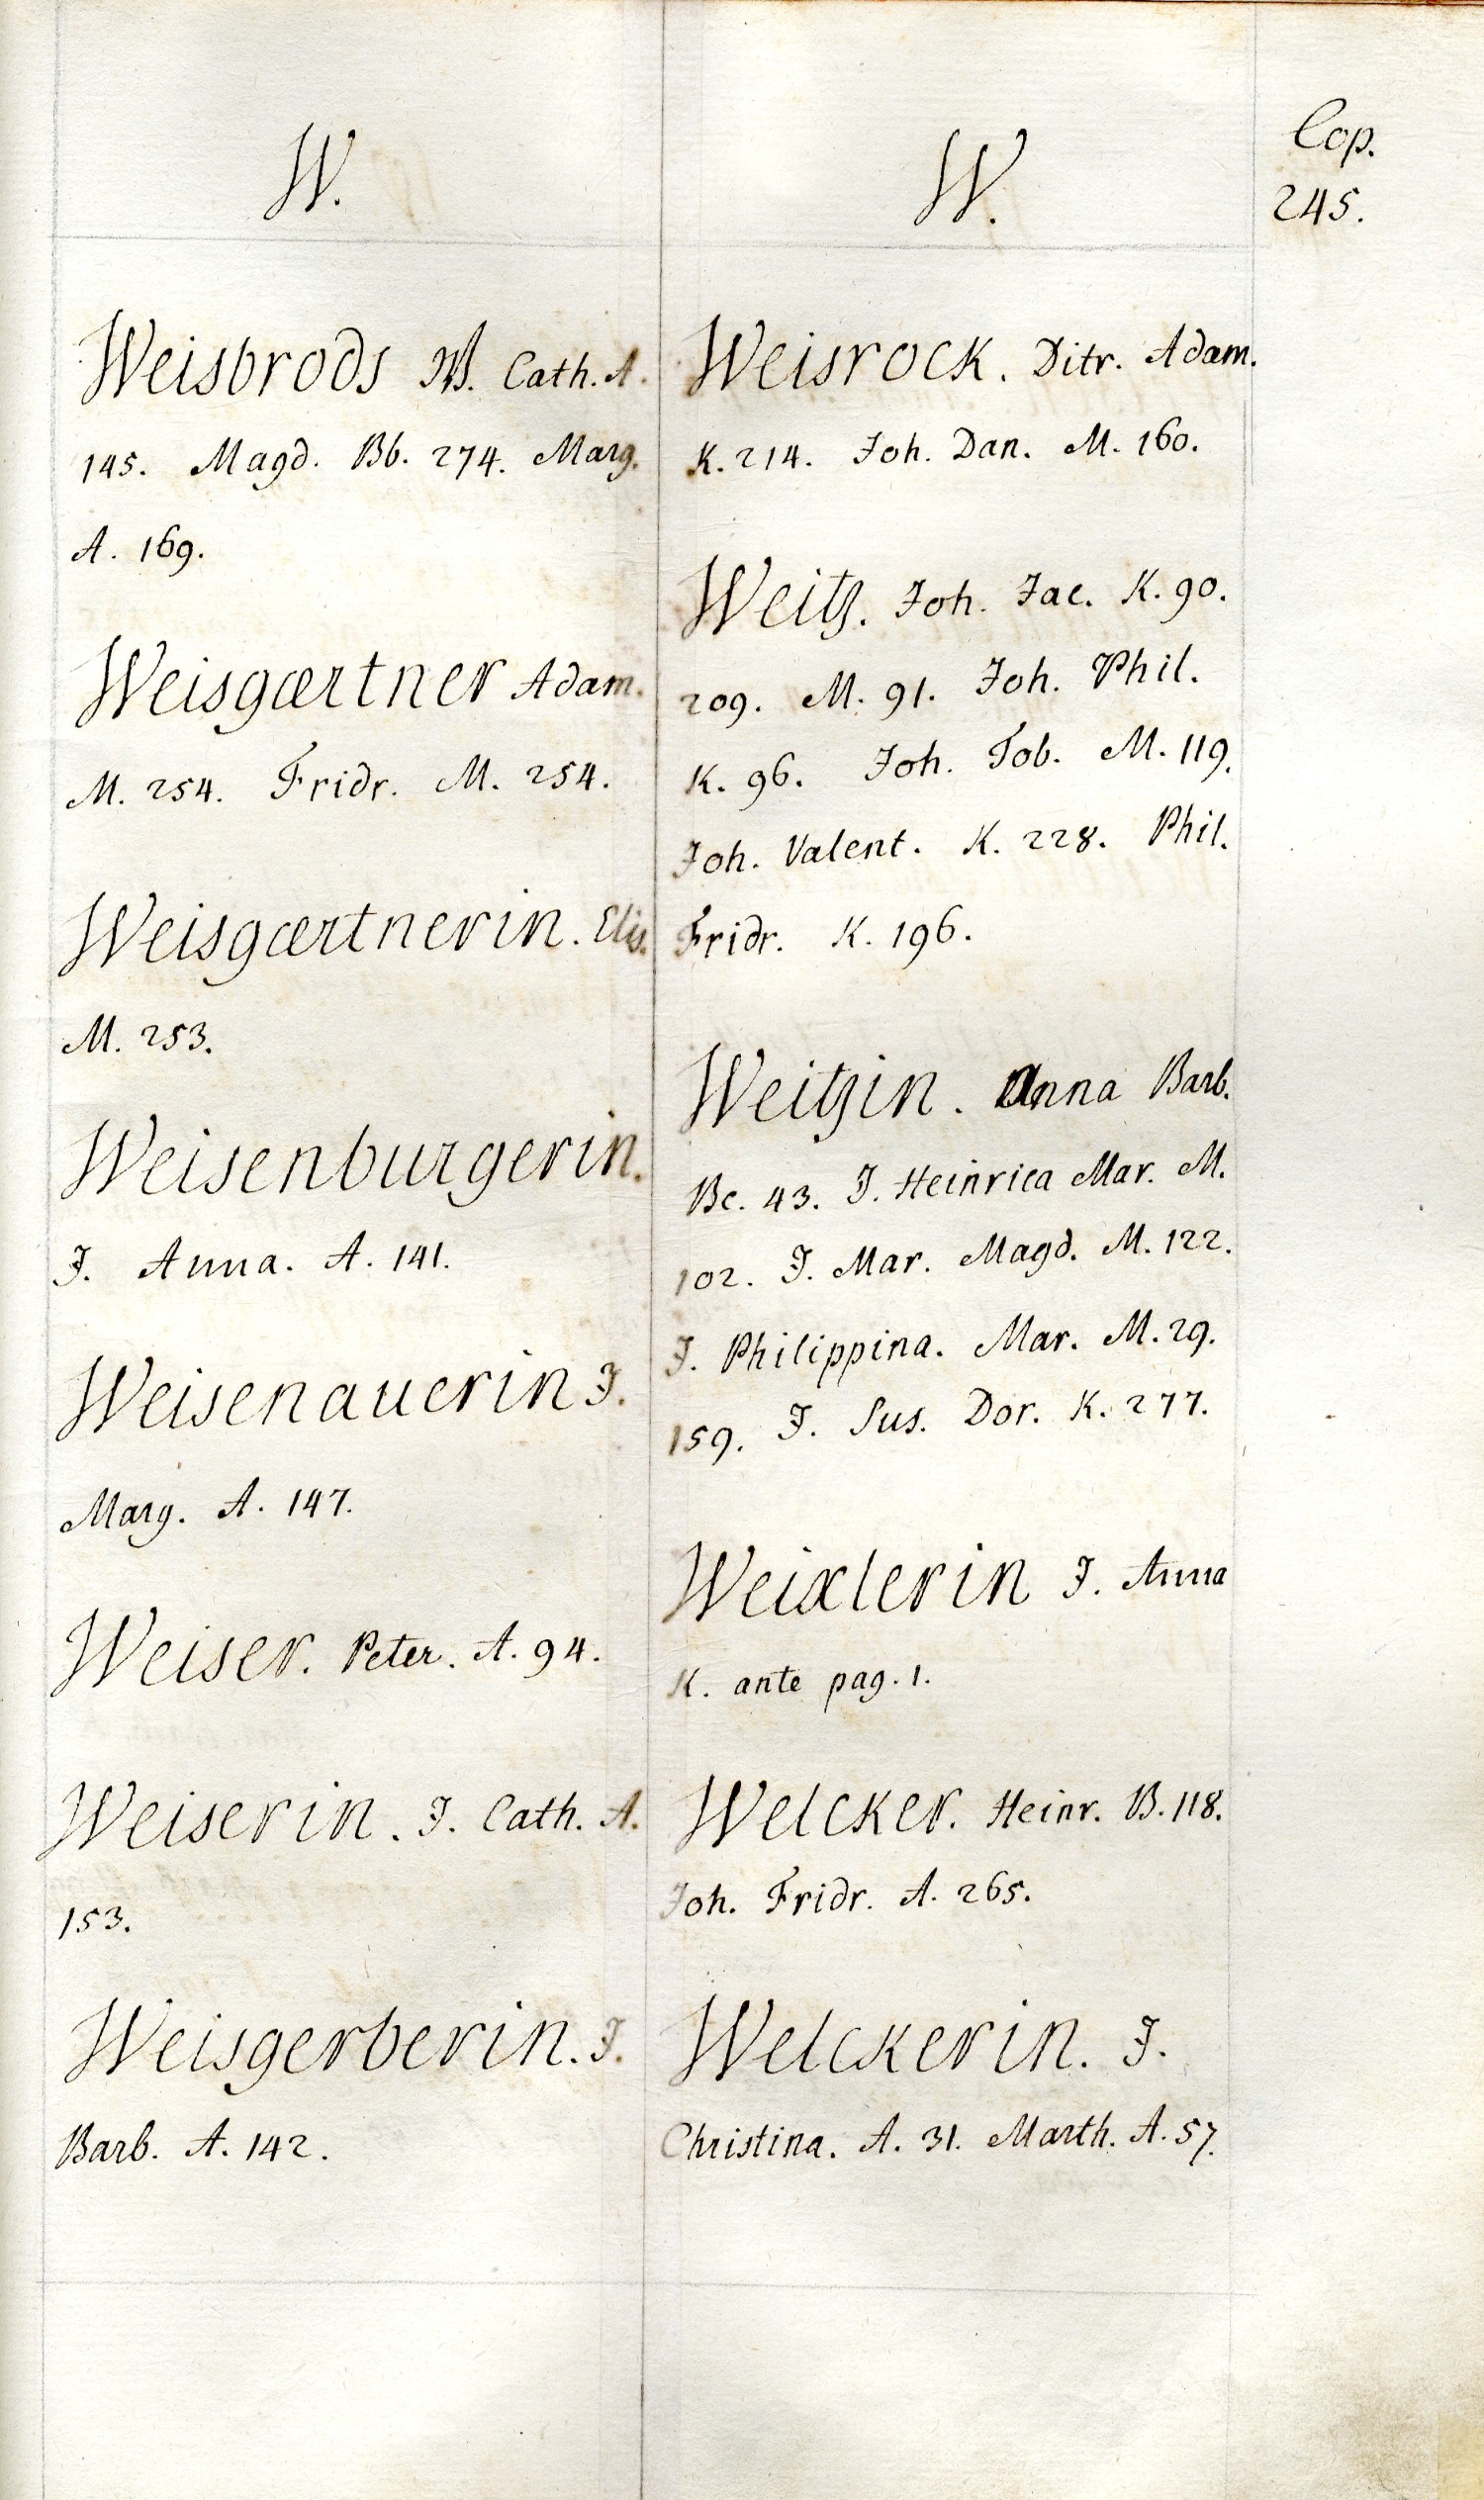 Cop.
245.
W.
Weisbrods W. Cath. A.
145. Magd. Bb. 274. Marg.
A. 169.
Weisgærtner Adam.
M. 254. Fridr. M. 254.
Weisgærtnerin. Elis.
M. 253.
Weisenburgerin.
J. Anna. A. 141.
Weisenauerin J.
Marg. A. 147.
Weiser. Peter. A. 94.
Weiserin. J. Cath. A.
153.
Weisgerberin. J.
Barb. A. 142.
W.
Weisrock. Ditr. Adam.
K. 214. Joh. Dan. M. 160.
Weitz. Joh. Jac. K. 90.
209. M. 91. Joh. Phil.
K. 96. Joh. Tob. M. 119.
Joh. Valent. K. 228. Phil.
Fridr. K. 196.
Weitzin. Anna Barb.
Bc. 43. J. Heinrica Mar. M.
102. J. Mar. Magd. M. 122.
J. Philippina. Mar. M. 29.
159. J. Sus. Dor. K. 277.
Weixlerin J. Anna
K. ante pag. 1.
Welcker. Heinr. B. 118.
Joh. Fridr. A. 265.
Welckerin. J.
Christina. A. 31. Marth. A. 57.